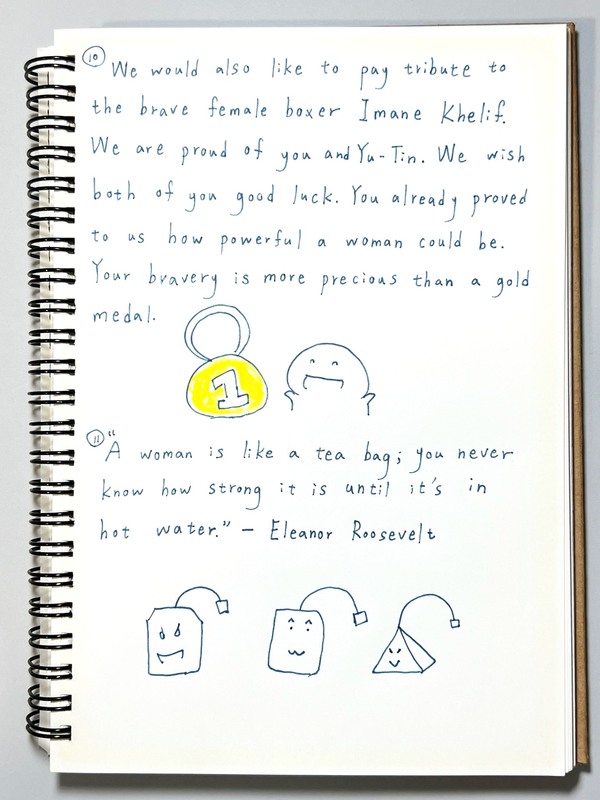 ⑩ We would also like to pay tribute to
the brave female boxer Imane Khelif.
We are proud of you and Yu-Tin. We wish
both of you good luck. You already proved
to us how powerful a woman could be.
Your bravery is more precious than a gold
medal.
1
⑪ "A woman is like a tea bag; you never
know how strong it is until it's in
hot water." – Eleanor Roosevelt